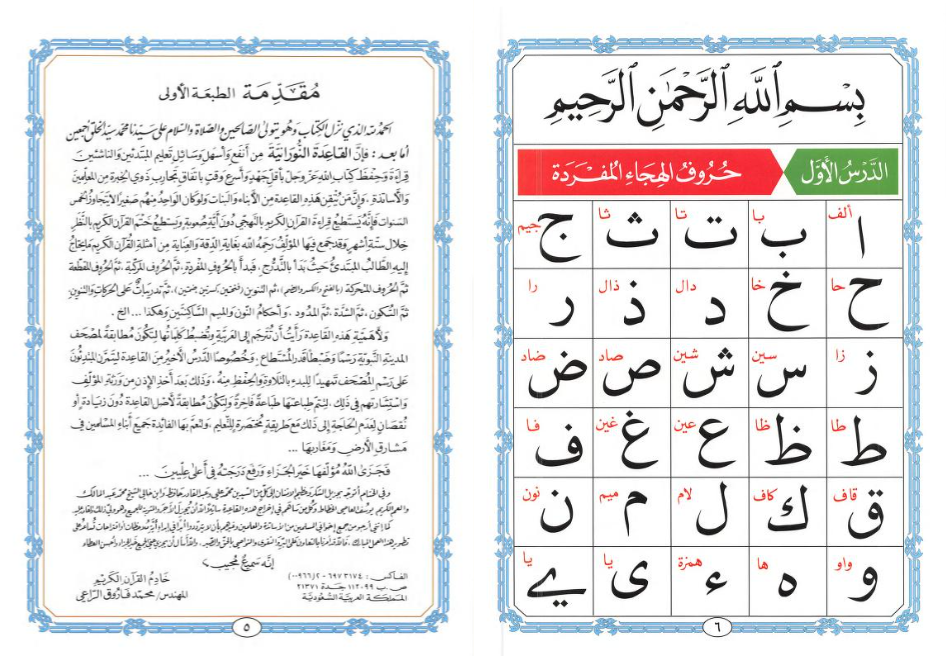 مُقَدِّمَة الطبعَة الأولى
الحمد لله الذي نزّل الكتاب وهو يتولى الصالحين والصلاة والسلام على سيدنا محمد سيد الخلق أجمعين
أما بعد : فإن القاعدة النورانية من أنفع وأسهل وسائل تعليم المبتدئين والناشئين
قراءة وحفظ كتاب الله عز وجل بأقل جهد وأسرع وقت باتفاق تجارب ذوي الخبرة من المعلمين
والأساتذة ، وإن من يتقن هذه القاعدة من الأبناء والبنات ولو كان الواحد منهم صغيرا لا يتجاوز الخمس
السنوات فإنه يستطيع قراءة القرآن الكريم بالتهجي دون أية صعوبة ويستطيع ختم القرآن الكريم بالنظر
خلال ستة أشهر وقد جمع فيها المؤلف رحمه الله بغاية الدقة والعناية من أمثلة القرآن الكريم ما يحتاج
إليه الطالب المبتدئ حيث بدأ بالتدرج ، فبدأ بالحروف المفردة ، ثم الحروف المركبة ، ثم الحروف المقطعة
ثم الحروف المتحركة (بالفتح والكسر والضم) ، ثم التنوين (فتحتين كسرتين ضمتين) ، ثم تدريبات على الحركات والتنوين
ثم السكون ، ثم الشدة ، ثم المدود ، وأحكام النون والميم الساكنتين وهكذا ... الخ .
ولأهمية هذه القاعدة رأيت أن تترجم إلى العربية وتضبط كلماتها لتكون مطابقة لمصحف
المدينة النبوية رسما وضبطا قدر المستطاع ، وخصوصا الدرس الأخير من القاعدة ليتمرن المبتدئون
على رسم المصحف تمهيدا للبدء بالتلاوة والحفظ منه ، وذلك بعد أخذ الإذن من ورثة المؤلف
واستشارتهم في ذلك ، ليتم طباعتها طباعة فاخرة ولتكون مطابقة لأصل القاعدة دون زيادة أو
نقصان لعدم الحاجة إلى ذلك مع طريقة مختصرة للتعليم ، ولتعم بها الفائدة جميع أبناء المسلمين في
مشارق الأرض ومغاربها ...
فجزى الله مؤلفها خير الجزاء ورفع درجته في أعلى عليين ...
إنه سميع مجيب
الفاكس : ٦٩٧٣١٧٤ - ٢/ (٠٠٩٦٦)
ص ب ١١٢٠٩٩ جدة ٢١٣٧١
المملكة العربية السعودية
خادم القرآن الكريم
المهندس/ محمد فاروق الراعي
٥
بِسْمِ ٱللَّهِ ٱلرَّحْمَٰنِ ٱلرَّحِيمِ
الدَّرْسُ الأَوَّل حُرُوفُ الهِجَاءِ المُفْرَدَة
ألف با تا ثا جيم
ا ب ت ث ج
حا خا دال ذال را
ح خ د ذ ر
زا سين شين صاد ضاد
ز س ش ص ض
طا ظا عين غين فا
ط ظ ع غ ف
قاف كاف لام ميم نون
ق ك ل م ن
واو ها همزة يا يا
و ه ء ى ے
٦